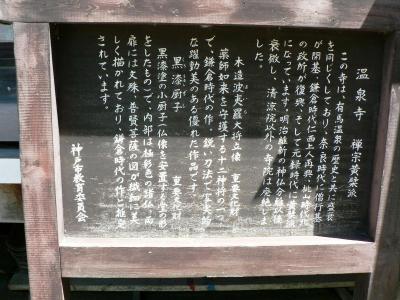 温泉寺　禅宗黄檗派
この寺は、有馬温泉の歴史と共に盛衰
を同じくしており、奈良時代に僧行基
が開基、鎌倉時代仁西上人再興、桃山時代北
の政所が復興、そして元禄時代に黄檗派
になっています。明治維新の神仏分離以後
衰微し、清涼院以外の寺院は廃絶しま
した。
木造波夷羅大将立像　重要文化財
薬師如来を守護する十二神将の一つ
で、鎌倉時代の作。鋭い刀法で写実的
な増動美のある優れた作品です。
黒漆厨子　重要文化財
黒漆塗の小厨子（仏像を安置する堂の形
をしたもの）で、内部は極彩色の張仏、両
扉には文殊、普賢菩薩の図が繊細に美
しく描かれており、鎌倉時代の作と推定
されています。
神戸市教育委員会